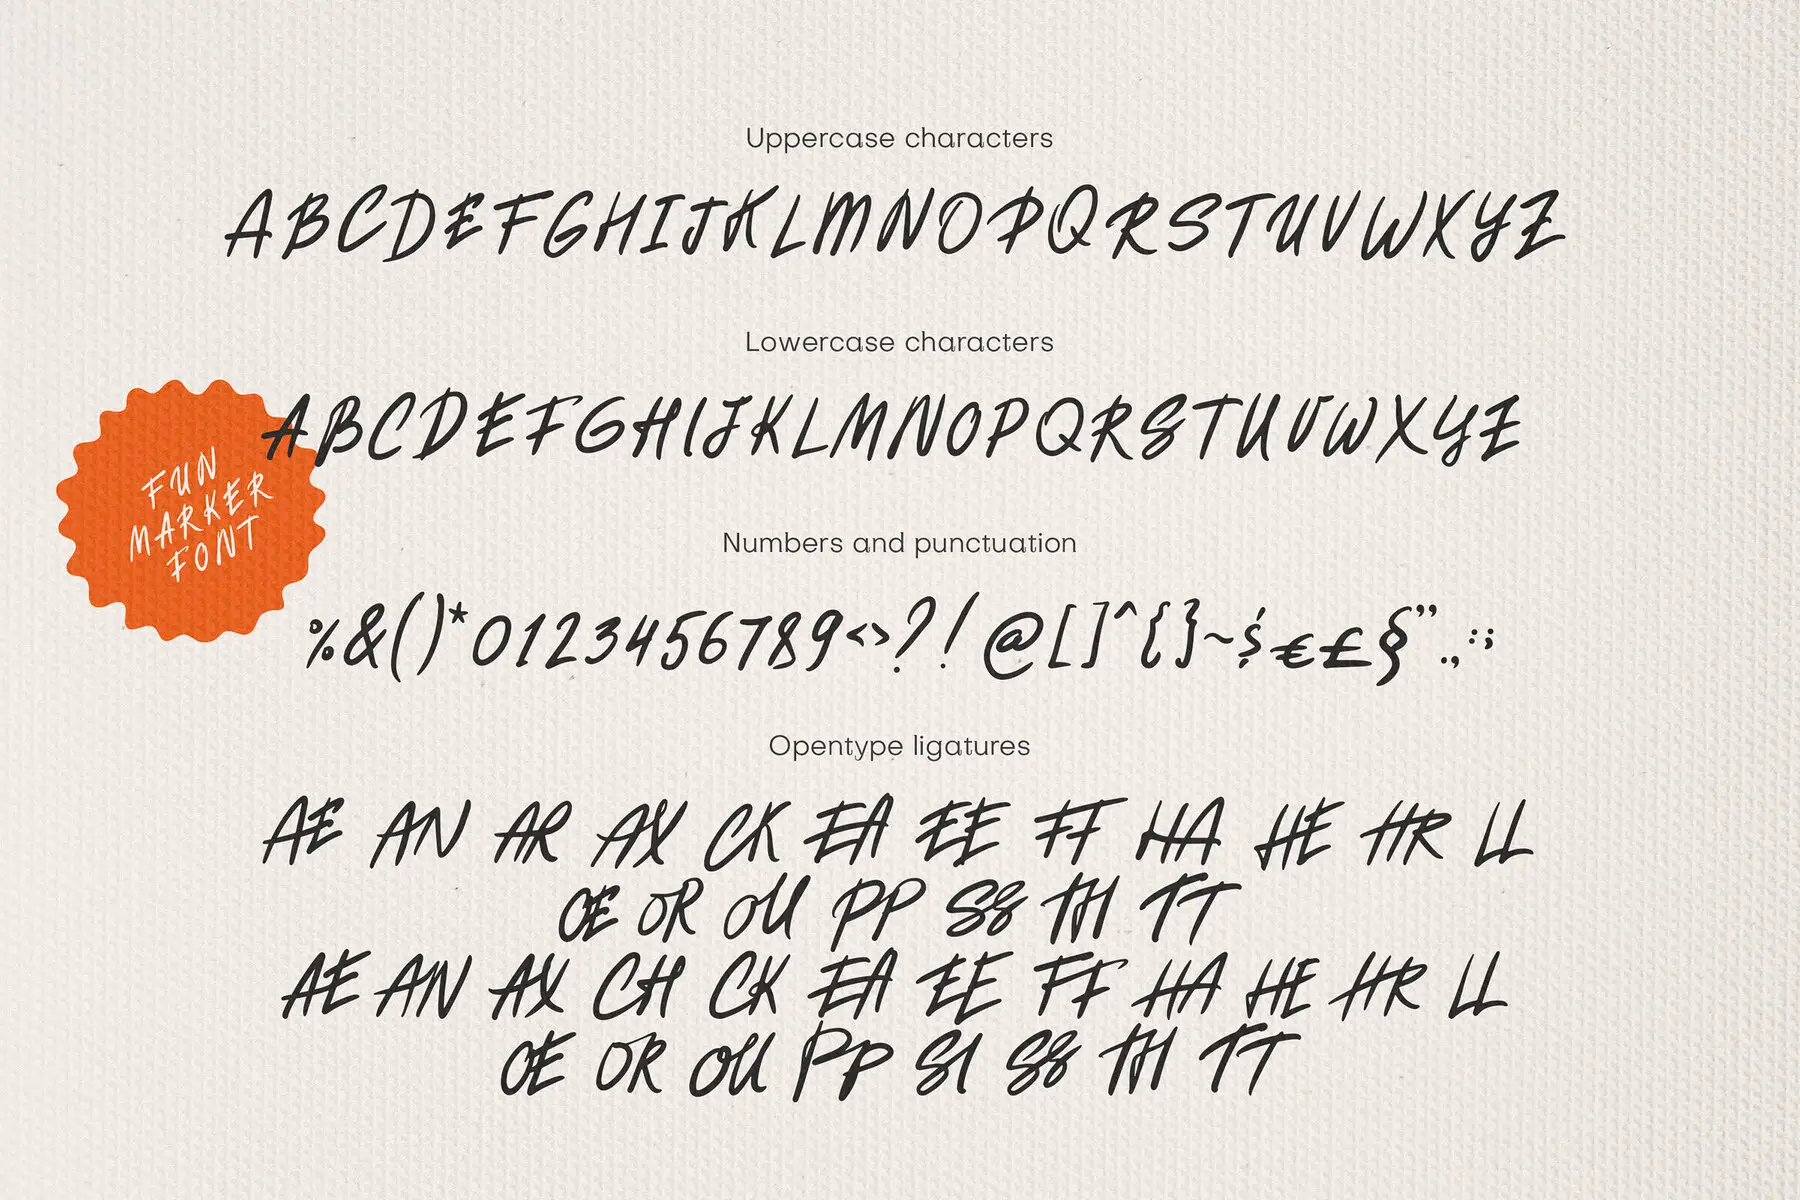 Uppercase characters
ABCDEFGHIJKLMNOPQRSTUVWXYZ
Lowercase characters
ABCDEFGHIJKLMNOPQRSTUVWXYZ
FUN
MARKER
FONT
Numbers and punctuation
%&()*0123456789<>?!@[]^{}~$€£§”.,:;
Opentype ligatures
AE AN AR AX CK EA EE FF HA HE HR LL
OE OR OU PP SS TH TT
AE AN AX CH CK EA EE FF HA HE HR LL
OE OR OU PP SI SS TH TT